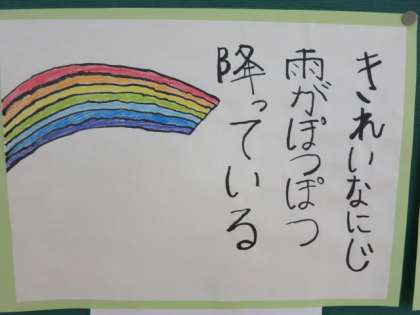 きれいなにじ
雨がぽつぽつ
降っている